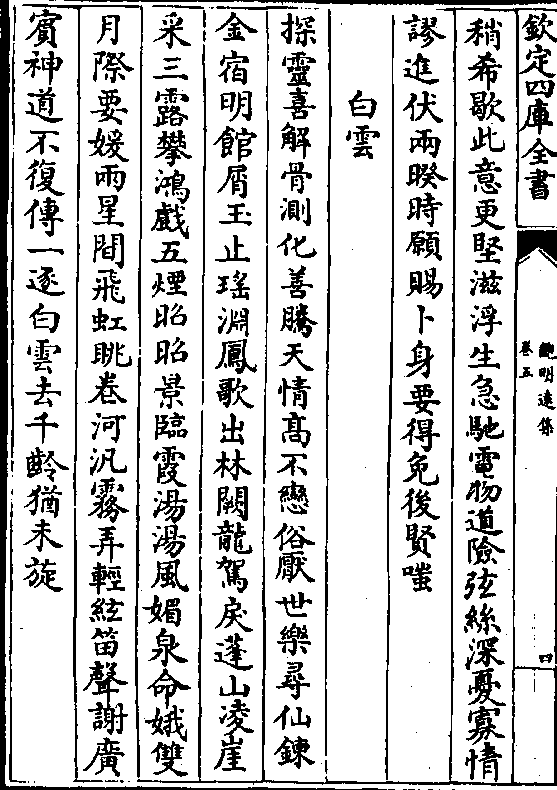 欽定四庫全書
鮑明遠集
卷五
四
稍希歇此意更堅滋浮生急馳電物道險弦絲深憂寡情
謬進伏兩暌時願賜卜身要得免後賢嗤
白雲
探靈喜解骨測化善騰天情高不戀俗厭世樂尋仙鍊
金宿明館屑玉止瑤淵鳳歌出林闕龍駕戾蓬山凌崖
采三露攀鴻戲五煙昭昭景臨霞湯湯風媚泉命娥雙
月際要媛兩星間飛虹眺卷河汎霧弄輕絃笛聲謝廣
賓神道不復傳一逐白雲去千齡猶未旋